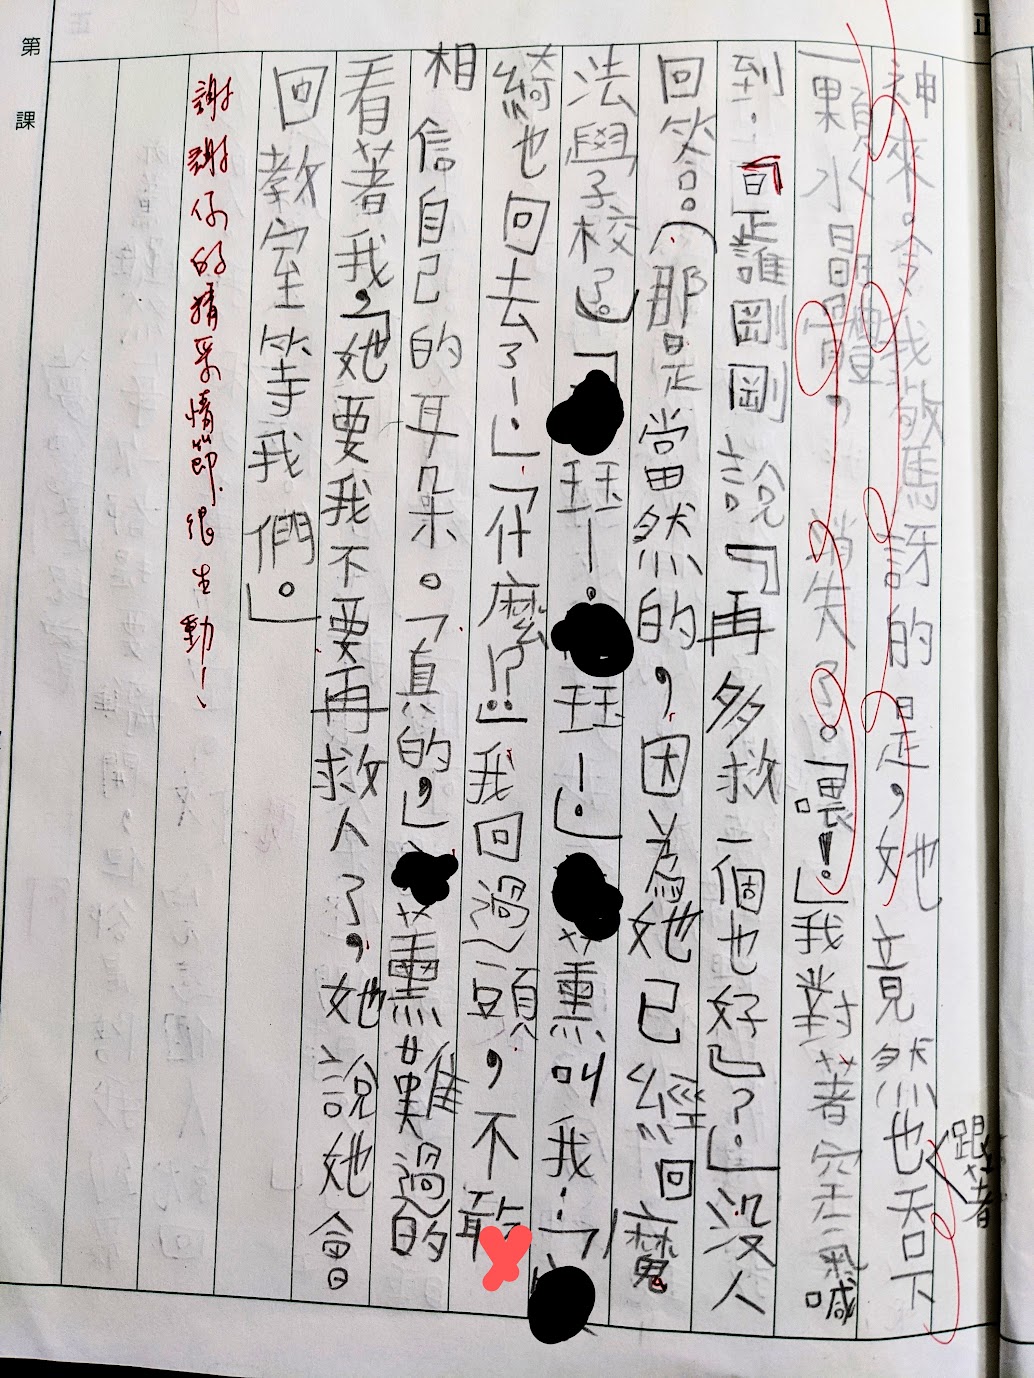 神來。令我驚訝的是,她也竟然也吞下
跟著
一顆水晶體,消失了。「喂!」我對著空氣喊
到:「是誰剛剛說『再多救一個也好』?」沒人
回答。(那是當然的,因為她已經回魔
法學校了。)「玨!玨!」薰叫我:「
綺也回去了!」「什麼!?」我回過頭,不敢
相信自己的耳朵。「真的,」薰難過的
看著我,「她要我不要再救人了,她說她會
回教室等我們。」
謝謝你的精采情節,很生動!
第 課